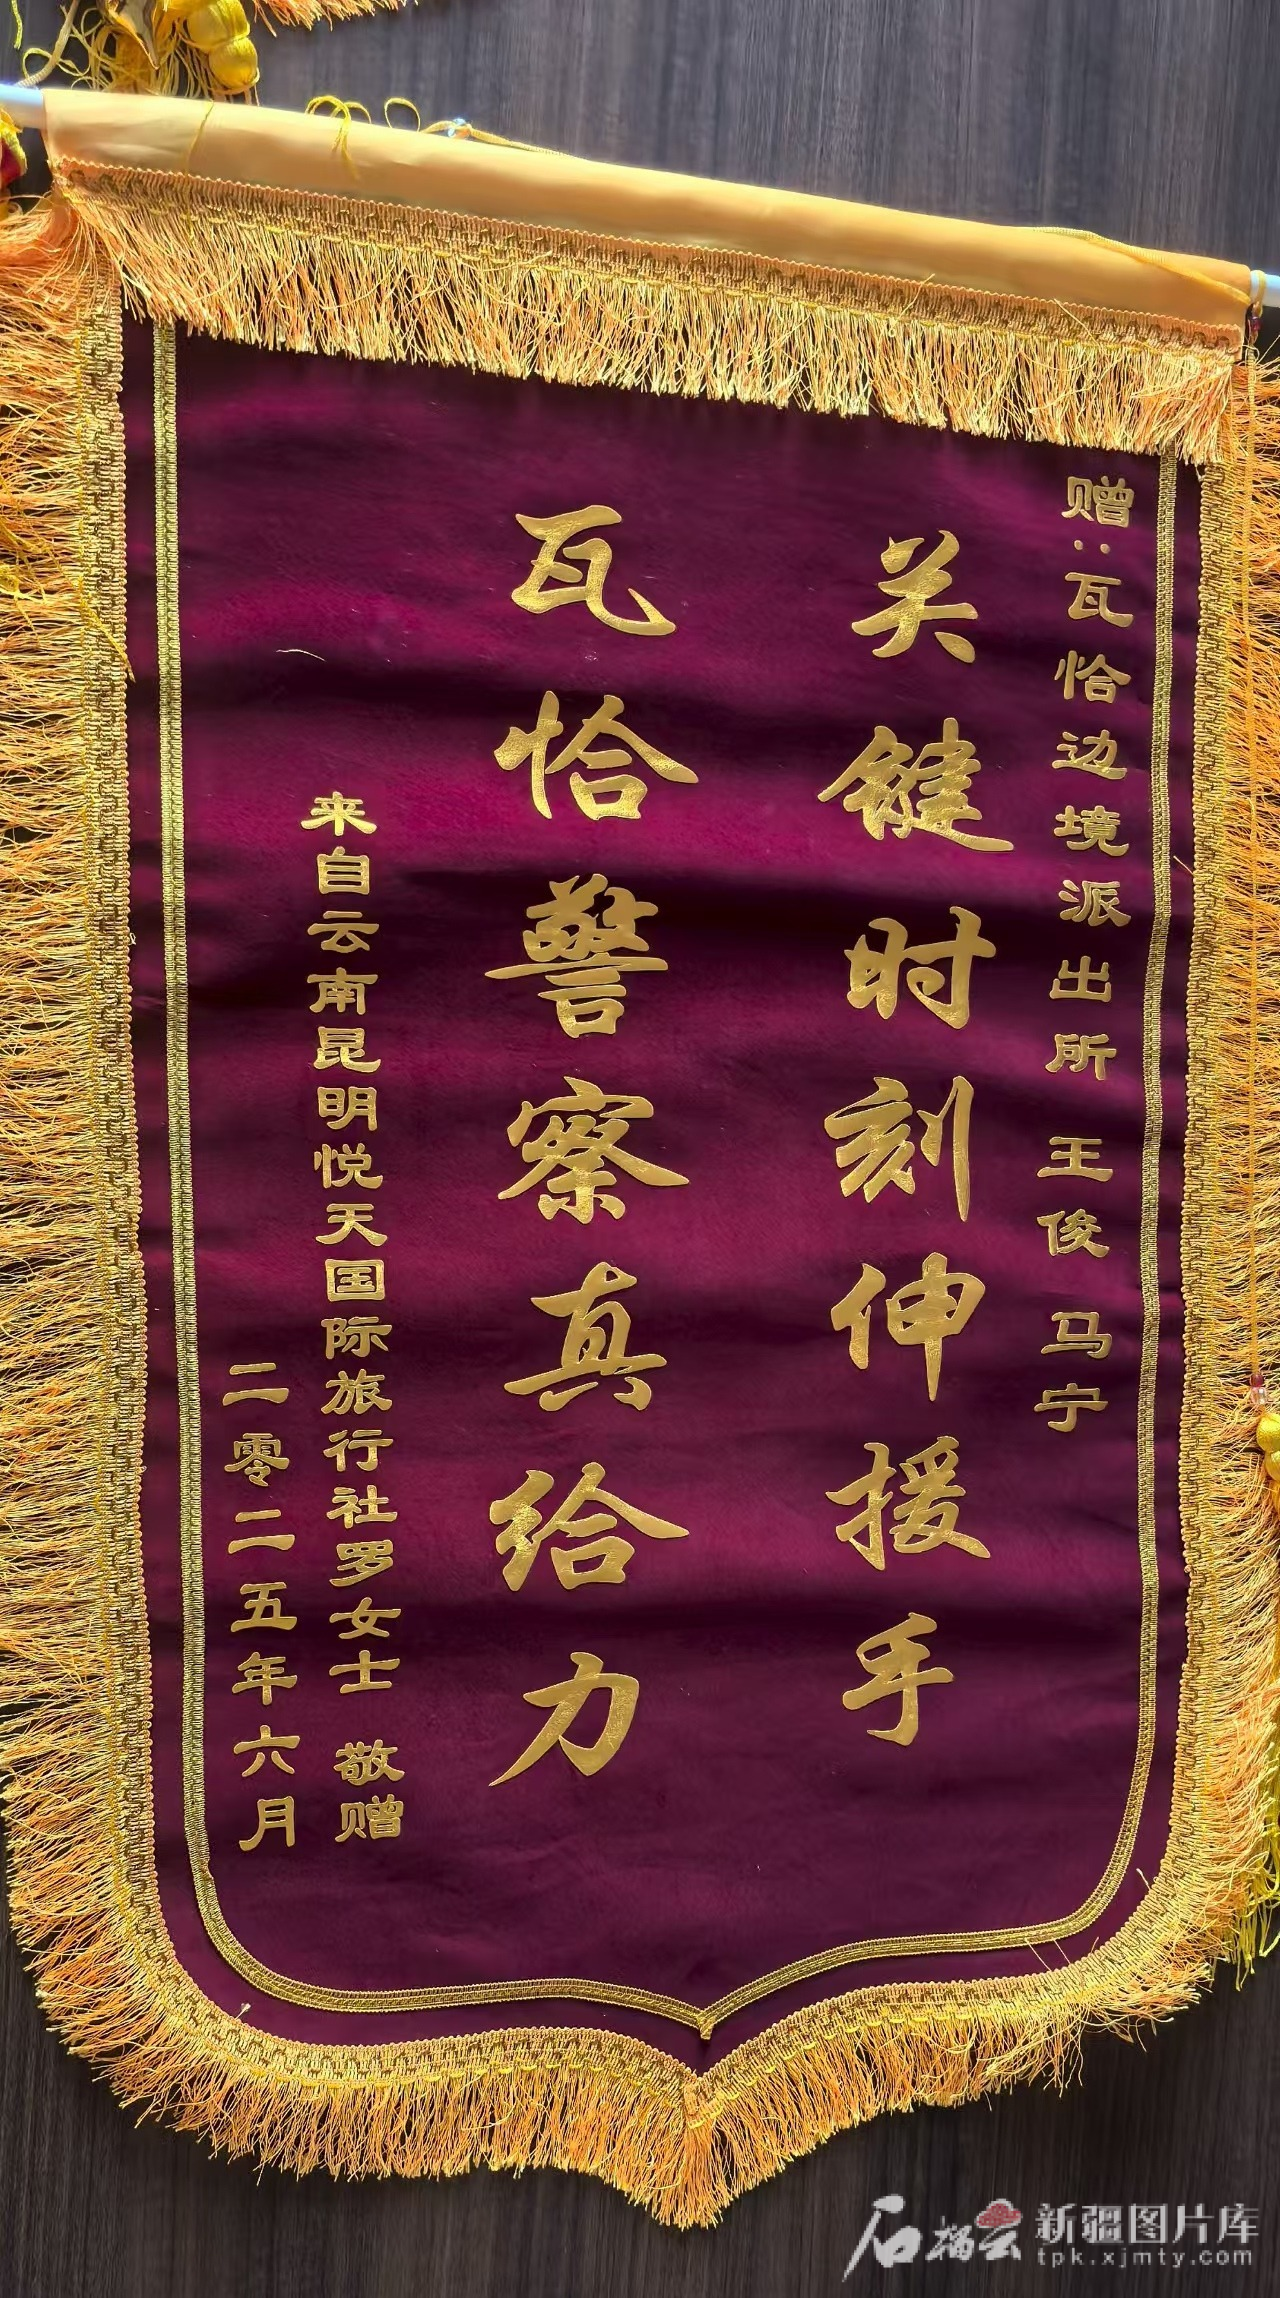 赠:瓦恰边境派出所 王俊 马宁
关键时刻伸援手
瓦恰警察真给力
来自云南昆明悦天国际旅行社罗女士 敬赠
二零二五年六月
石榴云 新疆图片库
tpk.xjmty.com